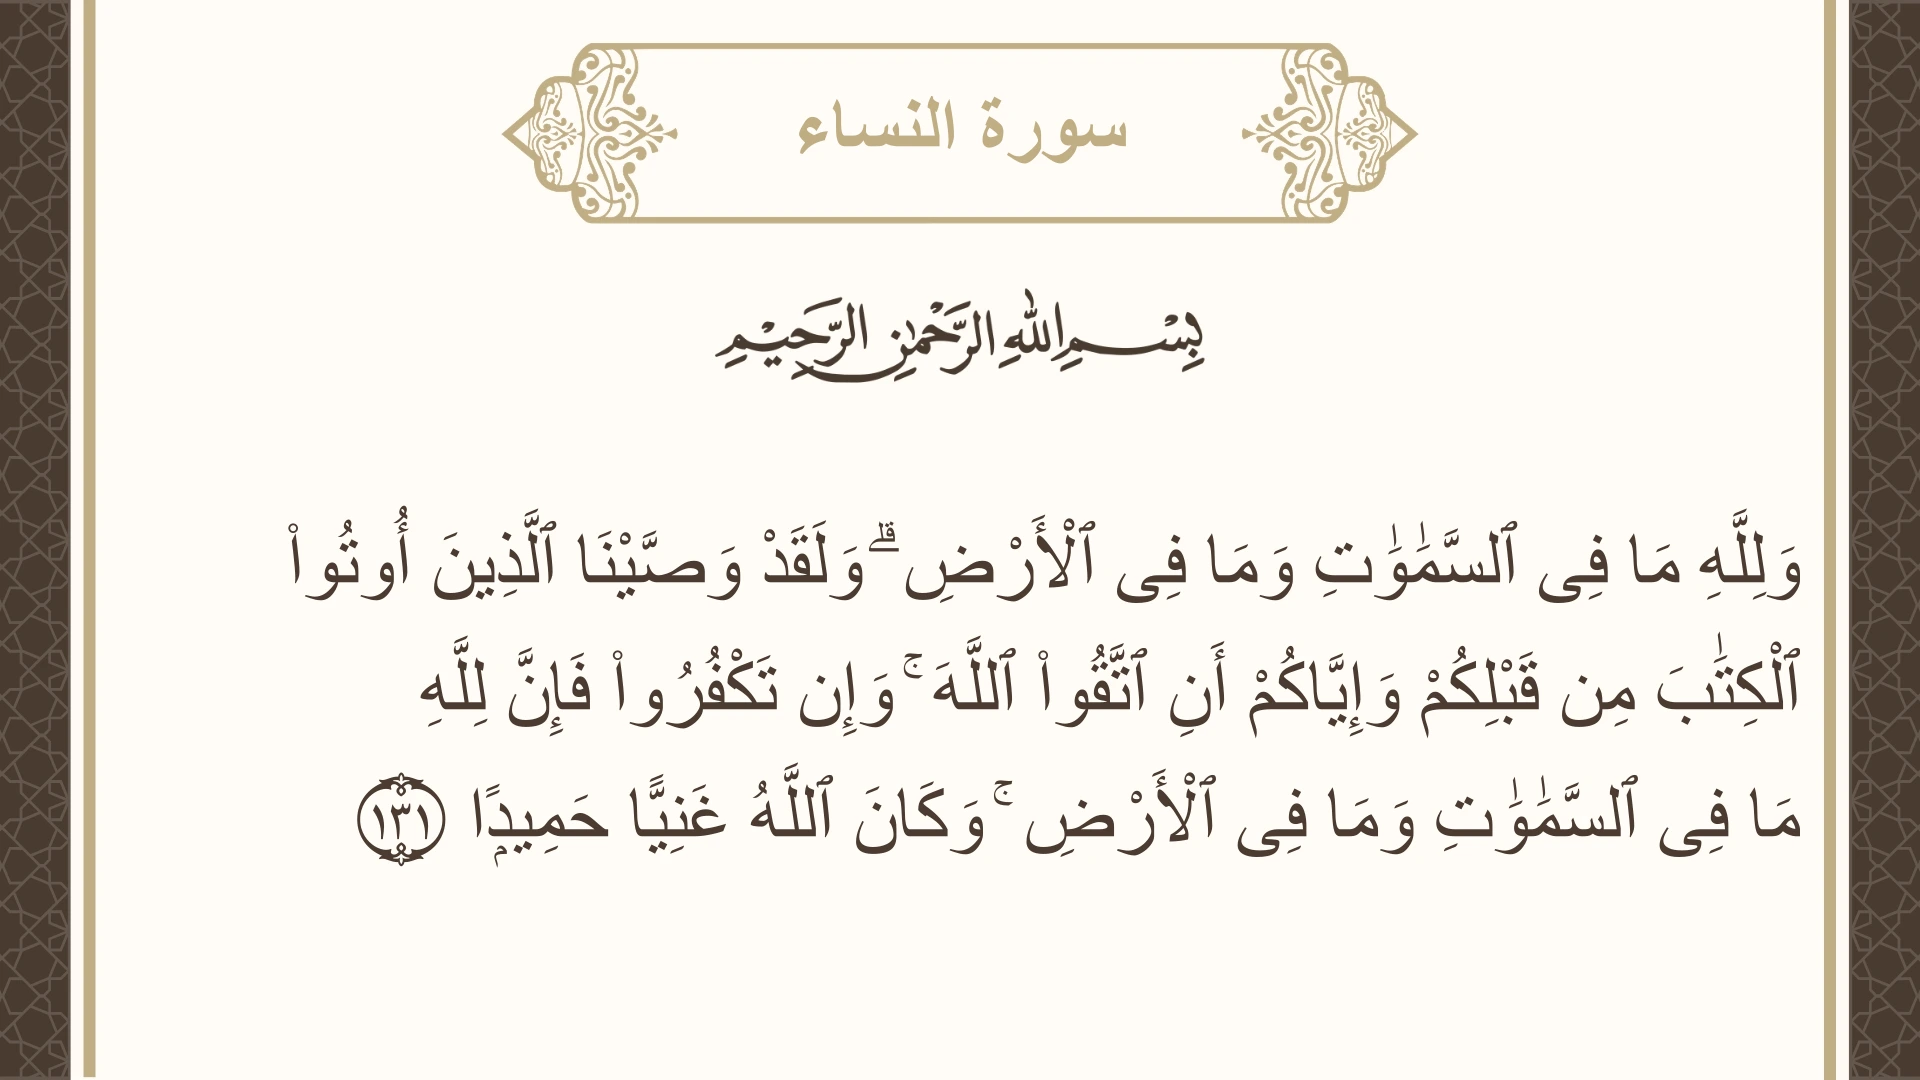 سورة النساء
بِسْمِ اللهِ الرَّحْمٰنِ الرَّحِيْمِ
وَلِلَّهِ مَا فِى ٱلسَّمَٰوَٰتِ وَمَا فِى ٱلْأَرْضِ ۗ وَلَقَدْ وَصَّيْنَا ٱلَّذِينَ أُوتُوا۟
ٱلْكِتَٰبَ مِن قَبْلِكُمْ وَإِيَّاكُمْ أَنِ ٱتَّقُوا۟ ٱللَّهَ ۚ وَإِن تَكْفُرُوا۟ فَإِنَّ لِلَّهِ
مَا فِى ٱلسَّمَٰوَٰتِ وَمَا فِى ٱلْأَرْضِ ۚ وَكَانَ ٱللَّهُ غَنِيًّا حَمِيدًۭا ١٣١